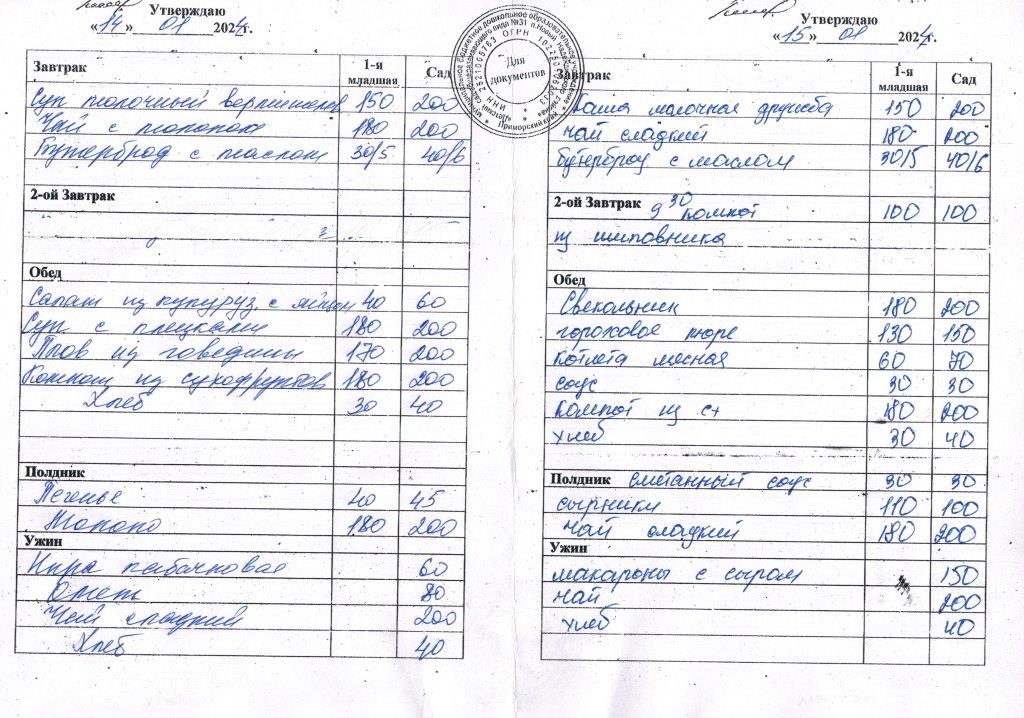 Утверждаю
«14» 01 2024г.
Завтрак 1-я младшая Сад
Суп молочный вермишелев 150 200
Чай с молоком 180 200
Бутерброд с маслом 30/5 40/6
2-ой Завтрак
Обед
Салат из кукуруз. с яйцом 40 60
Суп с клецками 180 200
Плов из говядины 170 200
Компот из сухофруктов 180 200
Хлеб 30 40
Полдник
Печенье 40 45
Молоко 180 200
Ужин
Икра кабачковая 60
Омлет 80
Чай сладкий 200
Хлеб 40
Для документов
Утверждаю
«15» 01 2024г.
Завтрак 1-я младшая Сад
Каша молочная дружба 150 200
Чай сладкий 180 200
бутерброд с маслом 30/5 40/6
2-ой Завтрак 9 30 Компот 100 100
из шиповника
Обед
Свекольник 180 200
гороховое пюре 130 150
котлета мясная 60 70
соус 30 30
Компот из с/х 180 200
хлеб 30 40
Полдник сметанный соус 30 30
сырники 110 100
Чай сладкий 180 200
Ужин
макароны с сыром 150
чай 200
хлеб 40